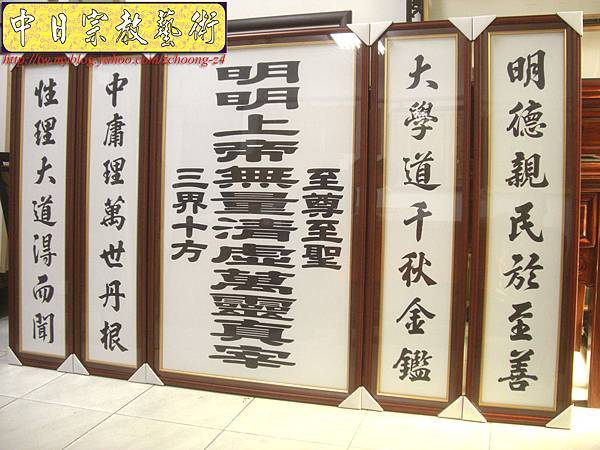 中日宗教藝術
http://tw.myblog.yahoo.com/zchoong-z4
明德親民於至善
大學道千秋金鑑
至尊至聖
明明上帝無量清虛萬靈真宰
三界十方
中庸理萬世丹根
性理大道得而聞